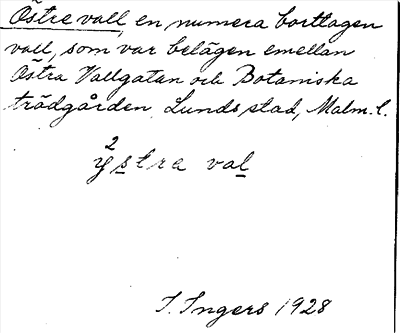 Östre vall, en numera borttagen
vall, som var belägen emellan
Östra Vallgatan och Botaniska
trädgården, Lunds stad, Malm. l.
2
ystra val
I. Ingers 1928